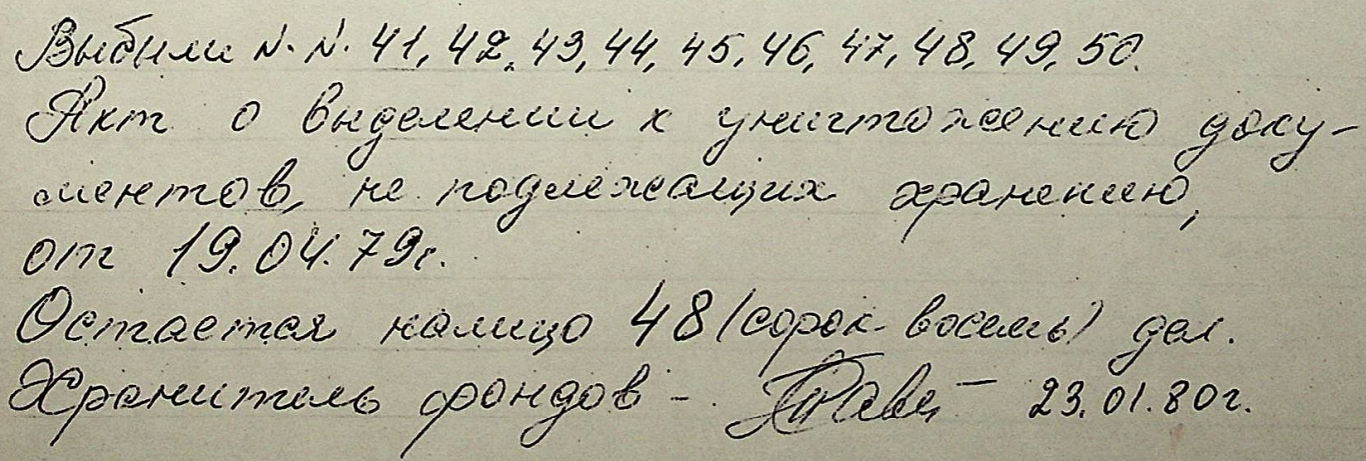 Выбыли N.N. 41, 42, 43, 44, 45, 46, 47, 48, 49, 50.
Акт о выделении к уничтожению доку-
ментов, не подлежащих хранению,
от 19.04.79г.
Остается налицо 48 (сорок восемь) дел.
Хранитель фондов - — 23.01.80г.